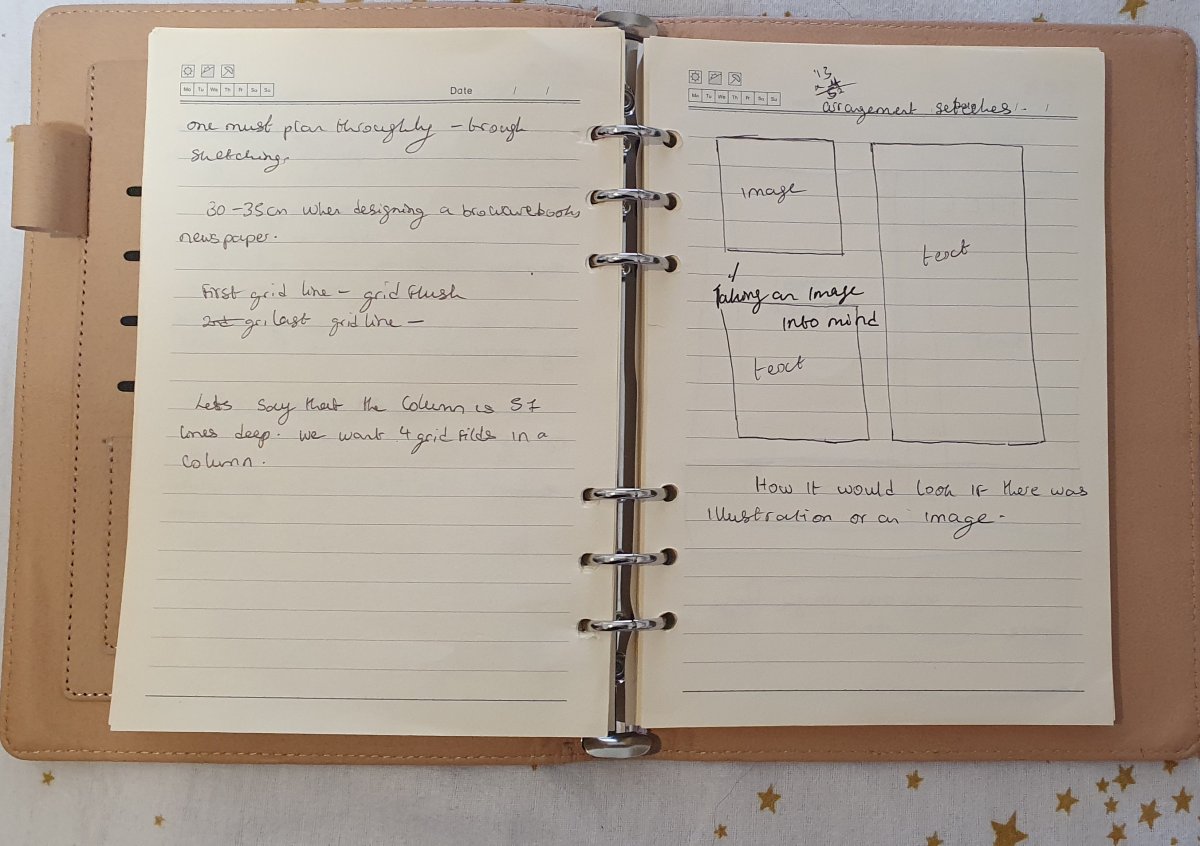 Mo Tu We Th Fr Sa Su
Date / /
one must plan throughly - trough
sketching.
30-35cm when designing a
newspaper.
First grid line - grid flush
2rd gri last grid line -
Lets say that the column is 57
lines deep. we want 4 grid filds in a
column.
Mo Tu We Th Fr Sa Su
/ /
arrangement
image
text
Taking an image
into mind
text
How it would look if there was
illustration or an image.